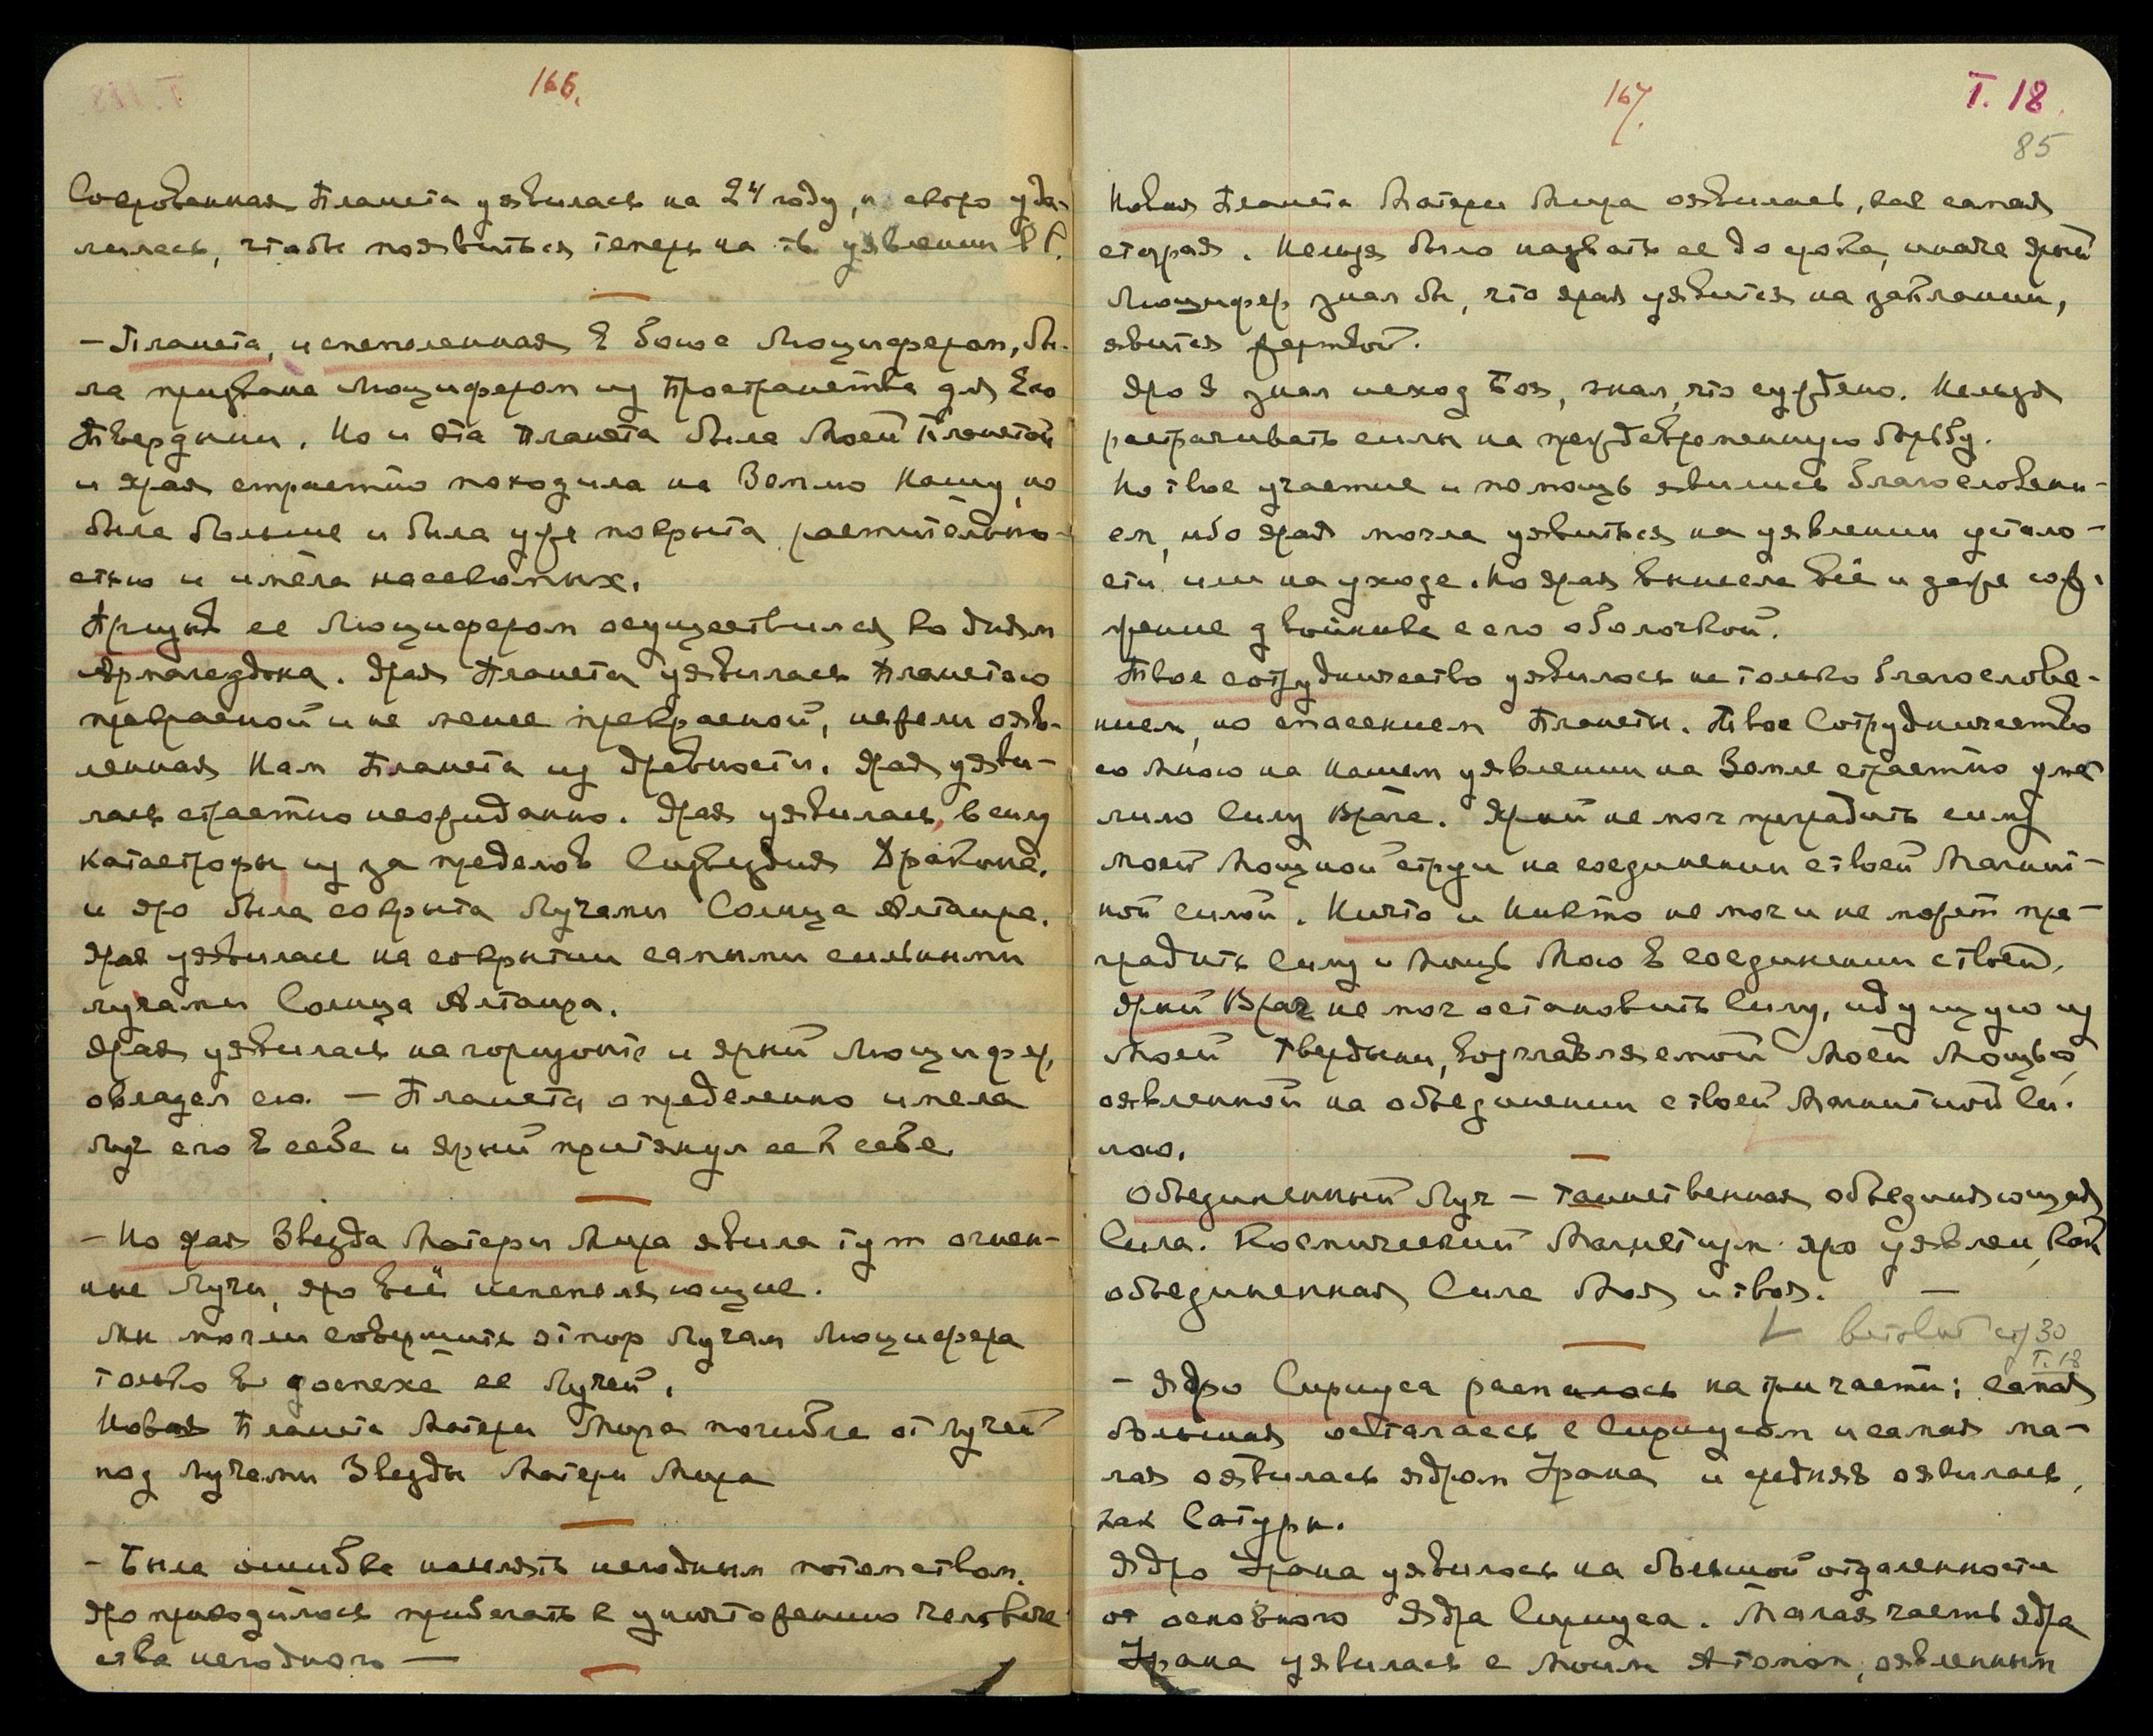 166.
Сокровенная Планета уявилась на 24 году, и скоро уда-
лилась, чтобы появиться теперь на ть уявлении
— Планета, испепеленная в бою с Люцифером, бы-
ла призвана Люцифером из Пространства для Его
Твердыни. Но и эта Планета была Моей Планетой
и ярая страстно походила на Землю Нашу, но
была больше и была уже покрыта растительно-
стью и имела насекомых.
Призыв ее Люцифером осуществился ко дням
Армагеддона. Ярая Планета уявилась Планетою
прекрасной и не менее прекрасной, нежели явь-
ленная Нам Планета из древности. Ярая уяви-
лась страстно неожиданно. Ярая уявилась, в силу
катастрофы из за пределов Созвездия Дракона,
и яро была сокрыта Лучами Солнца Альтаира.
Ярая уявилась на сокрытии самыми сильными
лучами Солнца Альтаира.
Ярая уявилась на горизонте и ярый Люцифер,
овладел ею. — Планета определенно имела
Луч его в себе и ярый притянул ее к себе.
— Но ярая Звезда Матери Мира явила тут огнен-
ные Лучи, яро всё испепеляющие.
Мы могли совершить отпор Лучам Люцифера
только в доспехе ее Лучей.
Новая Планета Матери Мира погибла от Лучей
под Лучами Звезды Матери Мира
— Была ошибка населять негодным потомством.
Яро приходилось прибегать к уничтожению человече
ства негодного —
167.
Т. 18.
85
Новая Планета Матери Мира оявилась, как самая
старая. Нельзя было назвать ее до срока, иначе ярый
Люцифер знал бы, что ярая уявится на заклании,
явится жертвой.
Яро Я знал исход Боя, знал, что суждено. Нельзя
растрачивать силы на преждевременную борьбу.
Но твое участие и помощь явились благословени-
ем, ибо ярая могла уявиться на уявлении устало-
сти или на уходе. Но ярая вынесла всё и даже сож-
жение двойника с его оболочкой.
Твое сотрудничество уявилось не только благослове-
нием, но спасением Планеты. Твое Сотрудничество
со Мною на Нашем уявлении на Земле страстно ума
лило Силу Врага. Ярый не мог преградить силу
моей Мощной струи на соединении с твоей Магнит-
ной силой. Ничто и Никто не мог и не может пре-
градить Силу и Мощь Мою в соединении с твоей.
Ярый Враг не мог остановить Силу, идущую из
Моей Твердыни, возглавляемой Моей Мощью,
оявленной на объединении с твоей Магнитной Си-
лою.
Объединенный Луч — таинственная объединяющая
Сила. Космический Магнетизм яро уявлен, как
объединенная Сила Моя и твоя. —
вставить стр 30
Т. 18
— Ядро Сириуса распалось на три части; самая
большая осталась с Сириусом и самая ма-
лая оявилась ядром Урана и средняя оявилась,
как Сатурн.
Ядро Урана уявилось на большой отдаленности
от основного Ядра Сириуса. Малая часть Ядра
Урана уявилась с Моим Атомом, оявленным